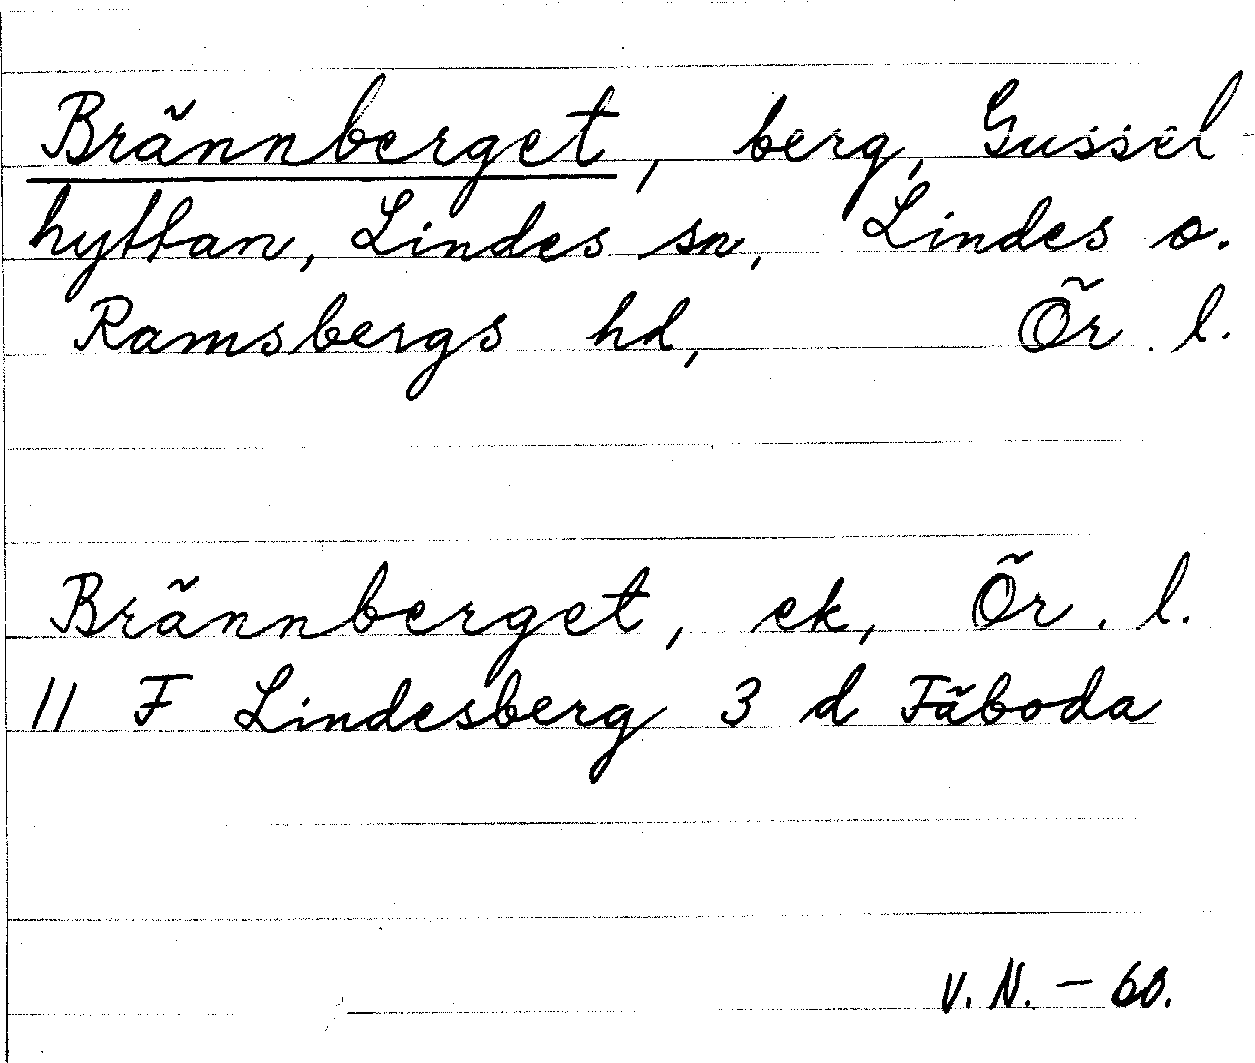 Brännberget, berg, Gussel-
hyttan, Lindes sn, Lindes o.
Ramsbergs hd, Ör. l.
Brännberget, ek, Ör. l.
11 F Lindesberg 3 d Fäboda
V. N. - 60.